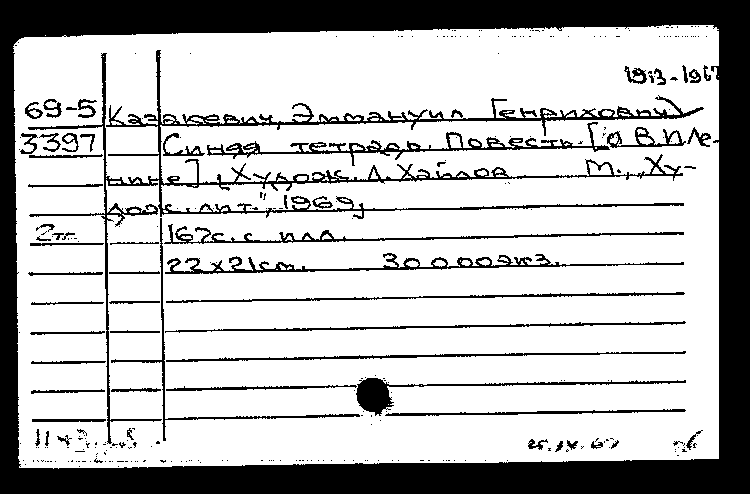 1913-1967
69-5 Казакевич, Эммануил Генрихович
3397 Синяя тетрадь. Повесть. [О В.И. Ле-
нине] [Худож. Л. Хайлов М., „Ху-
дож. лит.", 1969,
2т. 167с. с илл.
22х21см. 30000экз.